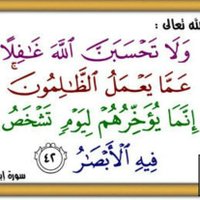 الله تعالى :
وَلَا تَحْسَبَنَّ ٱللَّهَ غَٰفِلًا
عَمَّا يَعْمَلُ ٱلظَّٰلِمُونَۚ
إِنَّمَا يُؤَخِّرُهُمْ لِيَوْمٍ تَشْخَصُ
فِيهِ ٱلْأَبْصَٰرُ ٤٢
سورة